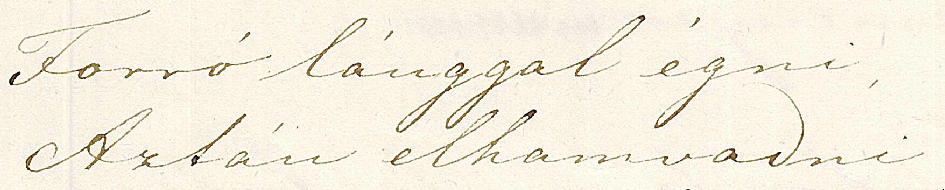 Forró lánggal égni,
Aztán elhamvadni